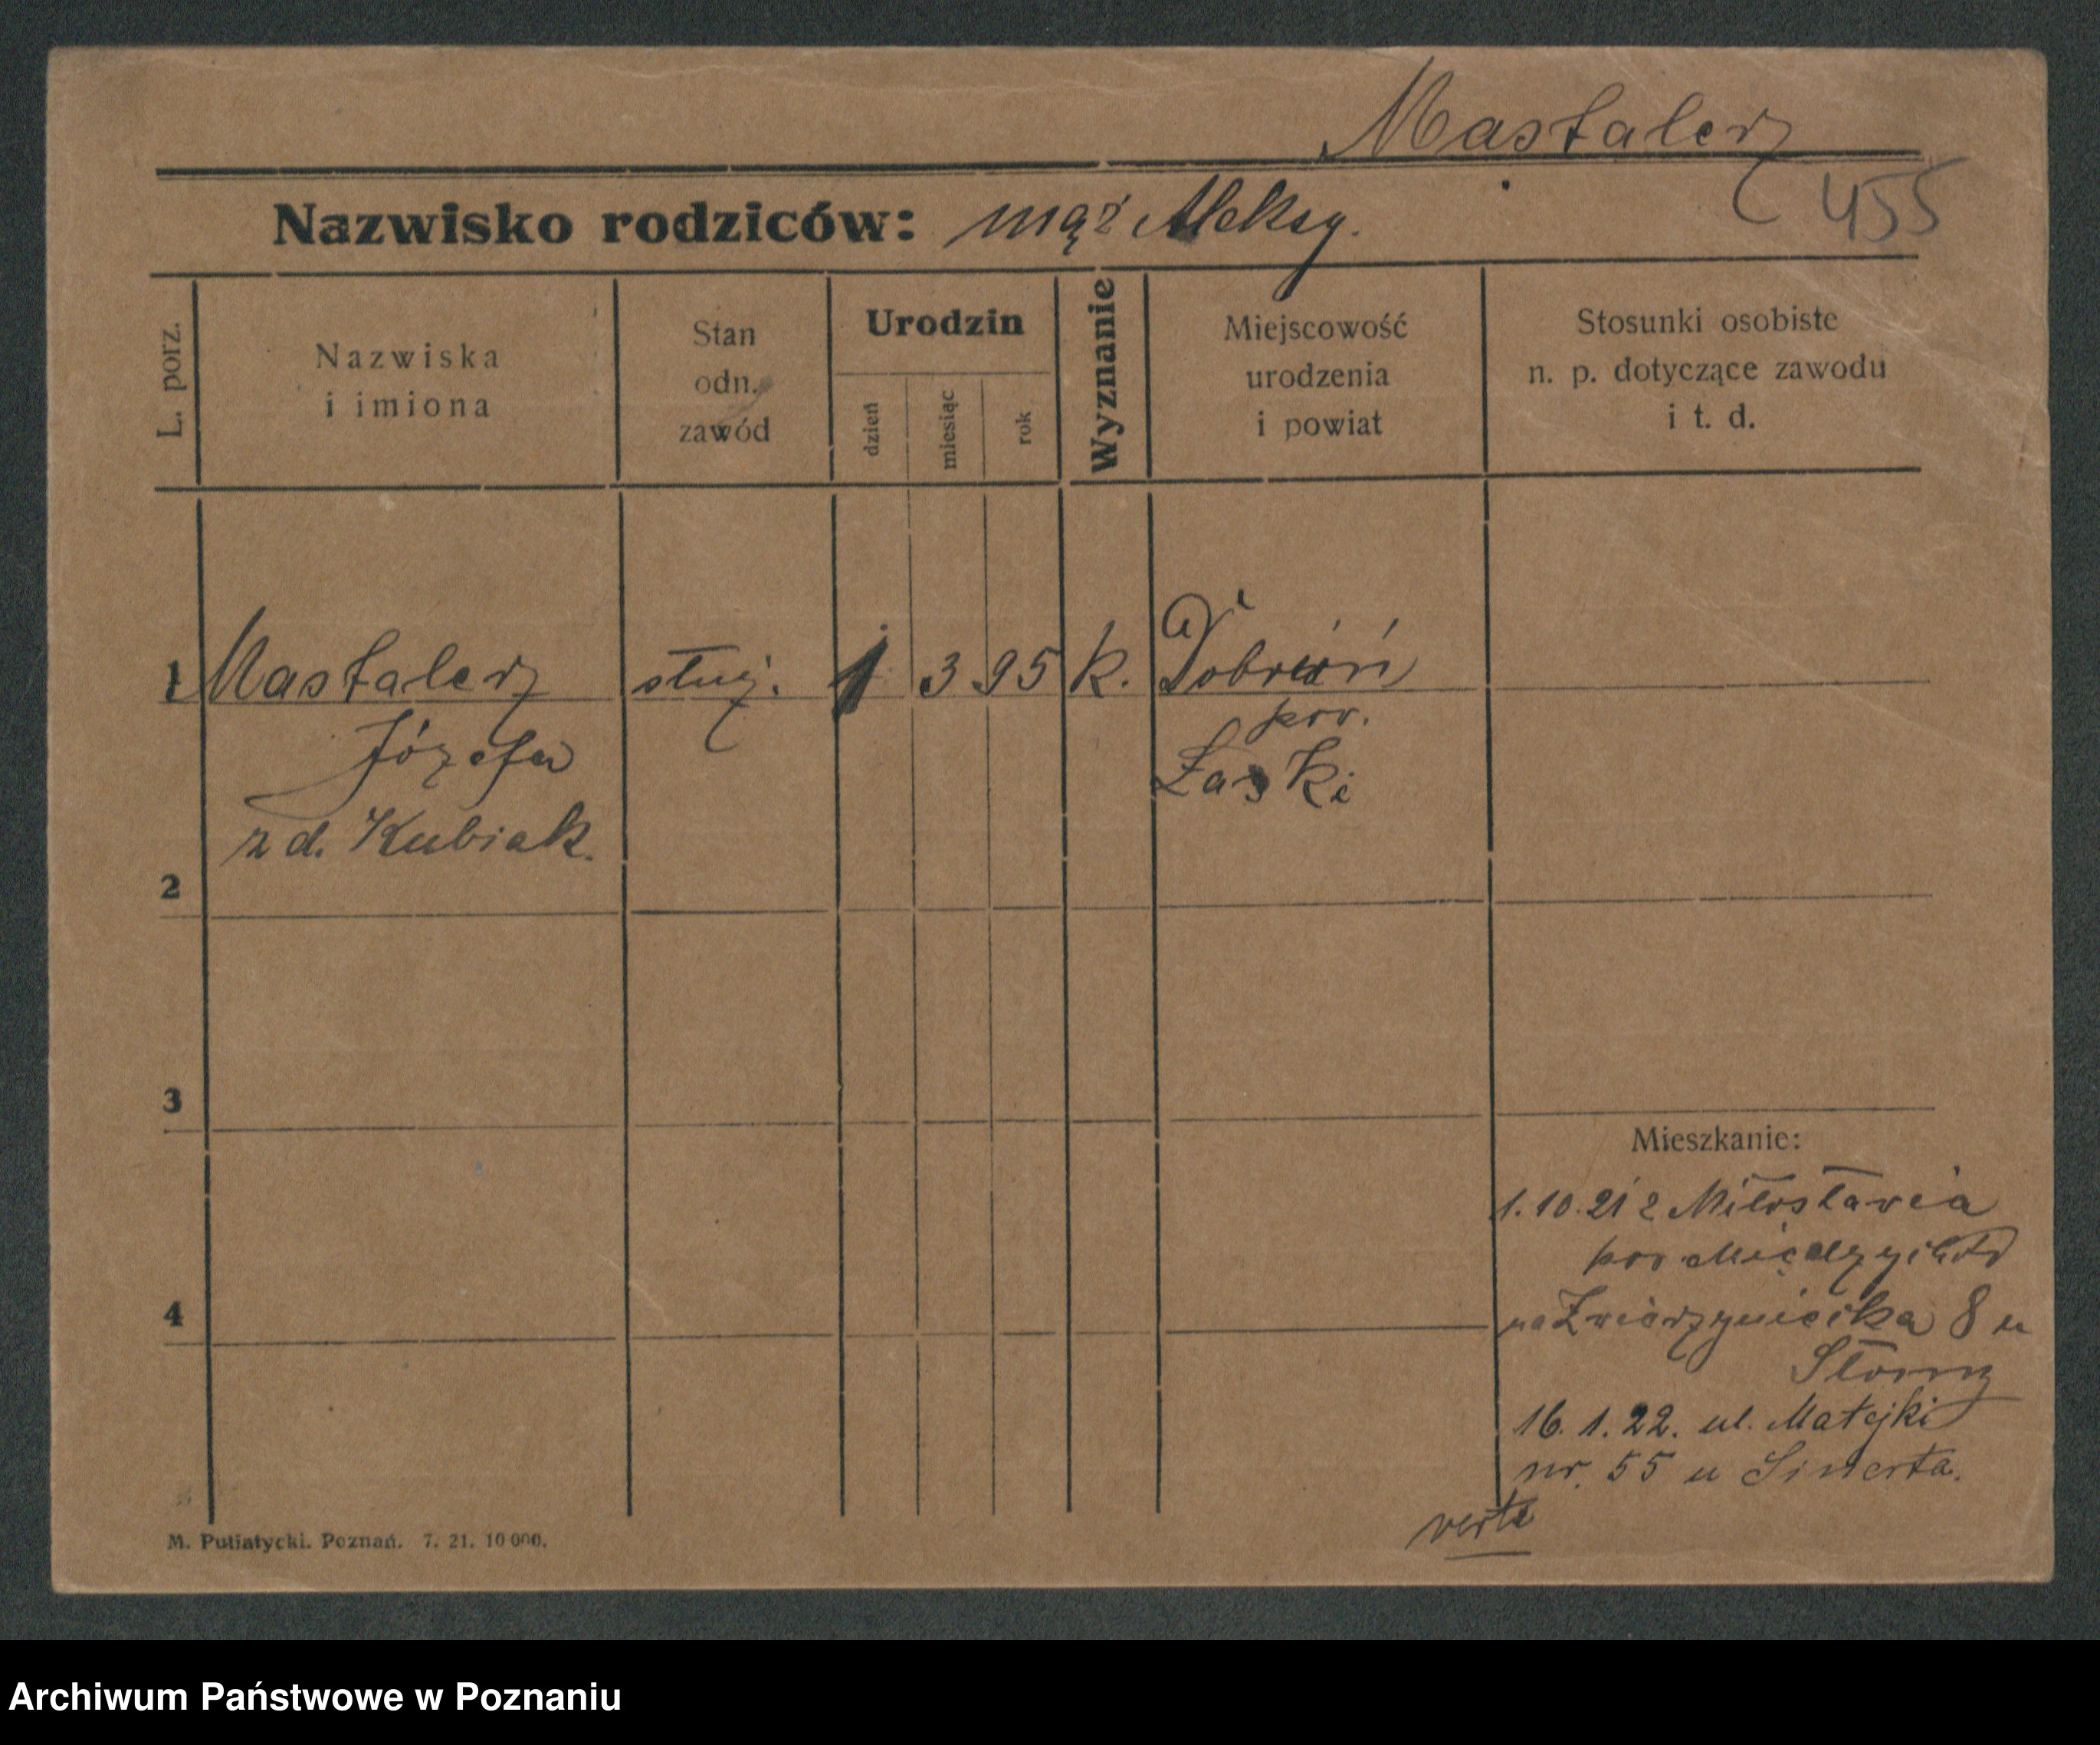 Mastalerz
455
Nazwisko rodziców: mąż Aleksy.
L. porz.
Nazwiska
i imiona
Stan
odn.
zawód
Urodzin
dzień
miesiąc
rok
Wyznanie
Miejscowość
urodzenia
i powiat
Stosunki osobiste
n. p. dotyczące zawodu
i t. d.
1 Mastalerz służ. 1 3 95 k. Dobroń
Józefa pow.
z d. Kubiak. Łaski
2
3
4
Mieszkanie:
1.10.21 z Miłostawia
pow Międzychód
na Zwierzyniecka 8 u
16. 1. 22. ul. Matejki
nr. 55 u
verte
M. Putiatycki. Poznań. 7. 21. 10 000.
Archiwum Państwowe w Poznaniu